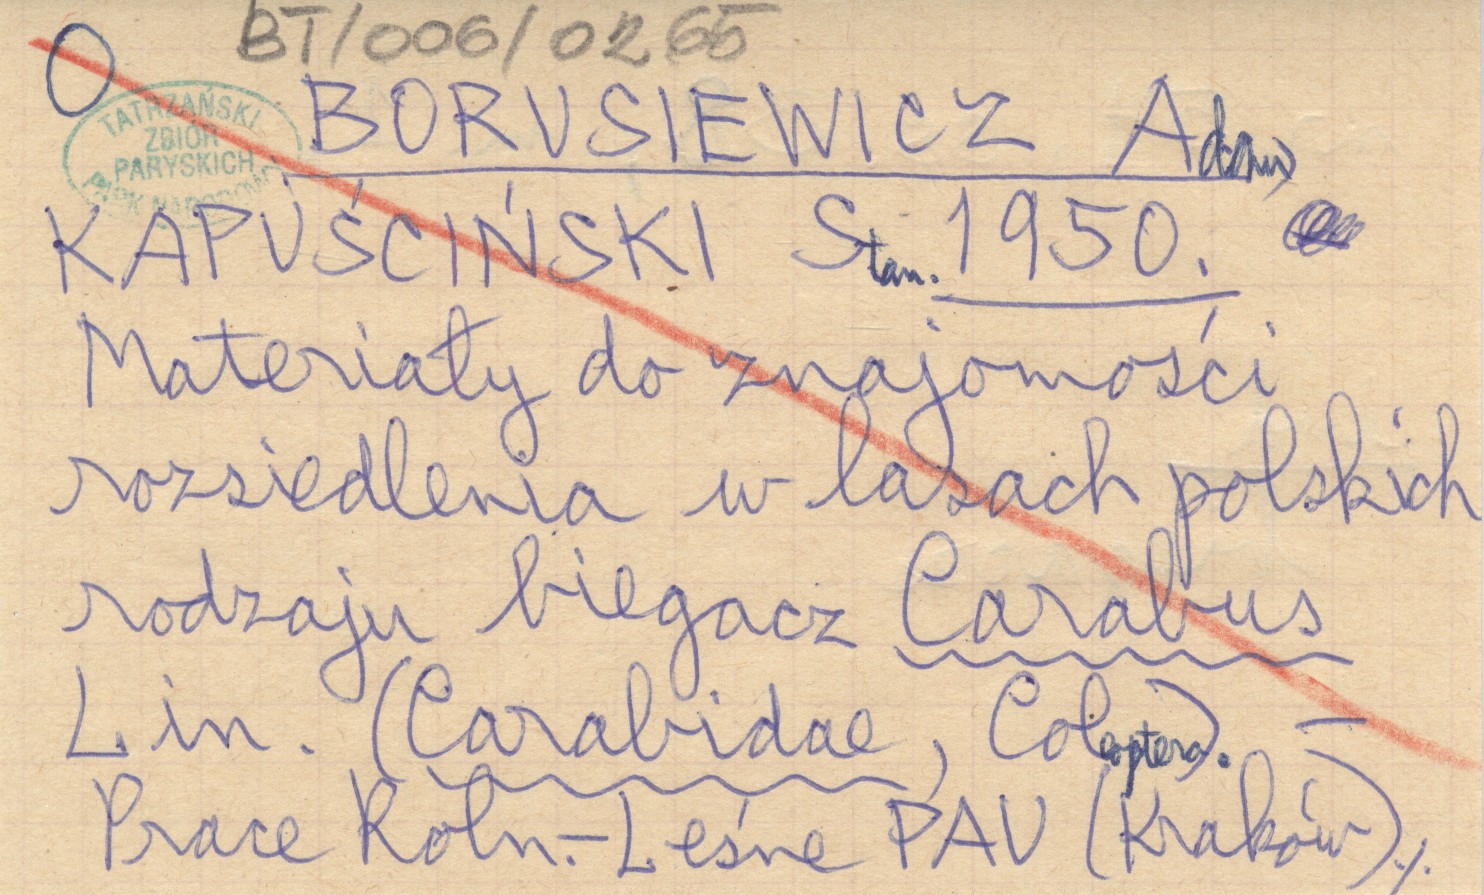 BT/006/0265
O
TATRZAŃSKI
ZBIÓR
PARYSKICH
PARK NARODOWY
BORUSIEWICZ Adam,
KAPUŚCIŃSKI Stan. 1950.
Materiały do znajomości
rozsiedlenia w lasach polskich
rodzaju biegacz Carabus
Lin. (Carabidae, Coleoptera). –
Prace Roln.-Leśne PAU (Kraków)./.